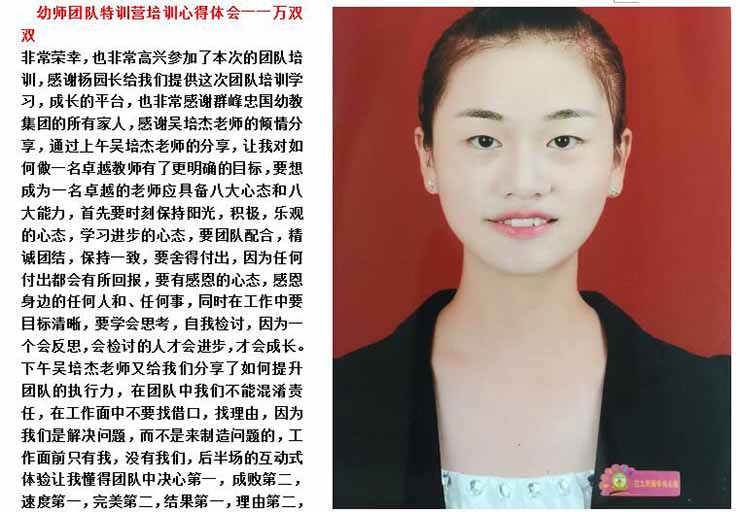 幼师团队特训营培训心得体会一一万双
双
非常荣幸，也非常高兴参加了本次的团队培
训，感谢杨园长给我们提供这次团队培训学
习，成长的平台，也非常感谢群峰忠国幼教
集团的所有家人，感谢吴培杰老师的倾情分
享，通过上午吴培杰老师的分享，让我对如
何做一名卓越教师有了更明确的目标，要想
成为一名卓越的老师应具备八大心态和八
大能力，首先要时刻保持阳光，积极，乐观
的心态，学习进步的心态，要团队配合，精
诚团结，保持一致，要舍得付出，因为任何
付出都会有所回报，要有感恩的心态，感恩
身边的任何人和、任何事，同时在工作中要
目标清晰，要学会思考，自我检讨，因为一
个会反思，会检讨的人才会进步，才会成长。
下午吴培杰老师又给我们分享了如何提升
团队的执行力，在团队中我们不能混淆责
任，在工作面中不要找借口，找理由，因为
我们是解决问题，而不是来制造问题的，工
作面前只有我，没有我们，后半场的互动式
体验让我懂得团队中决心第一，成败第二，
速度第一，完美第二，结果第一，理由第二，